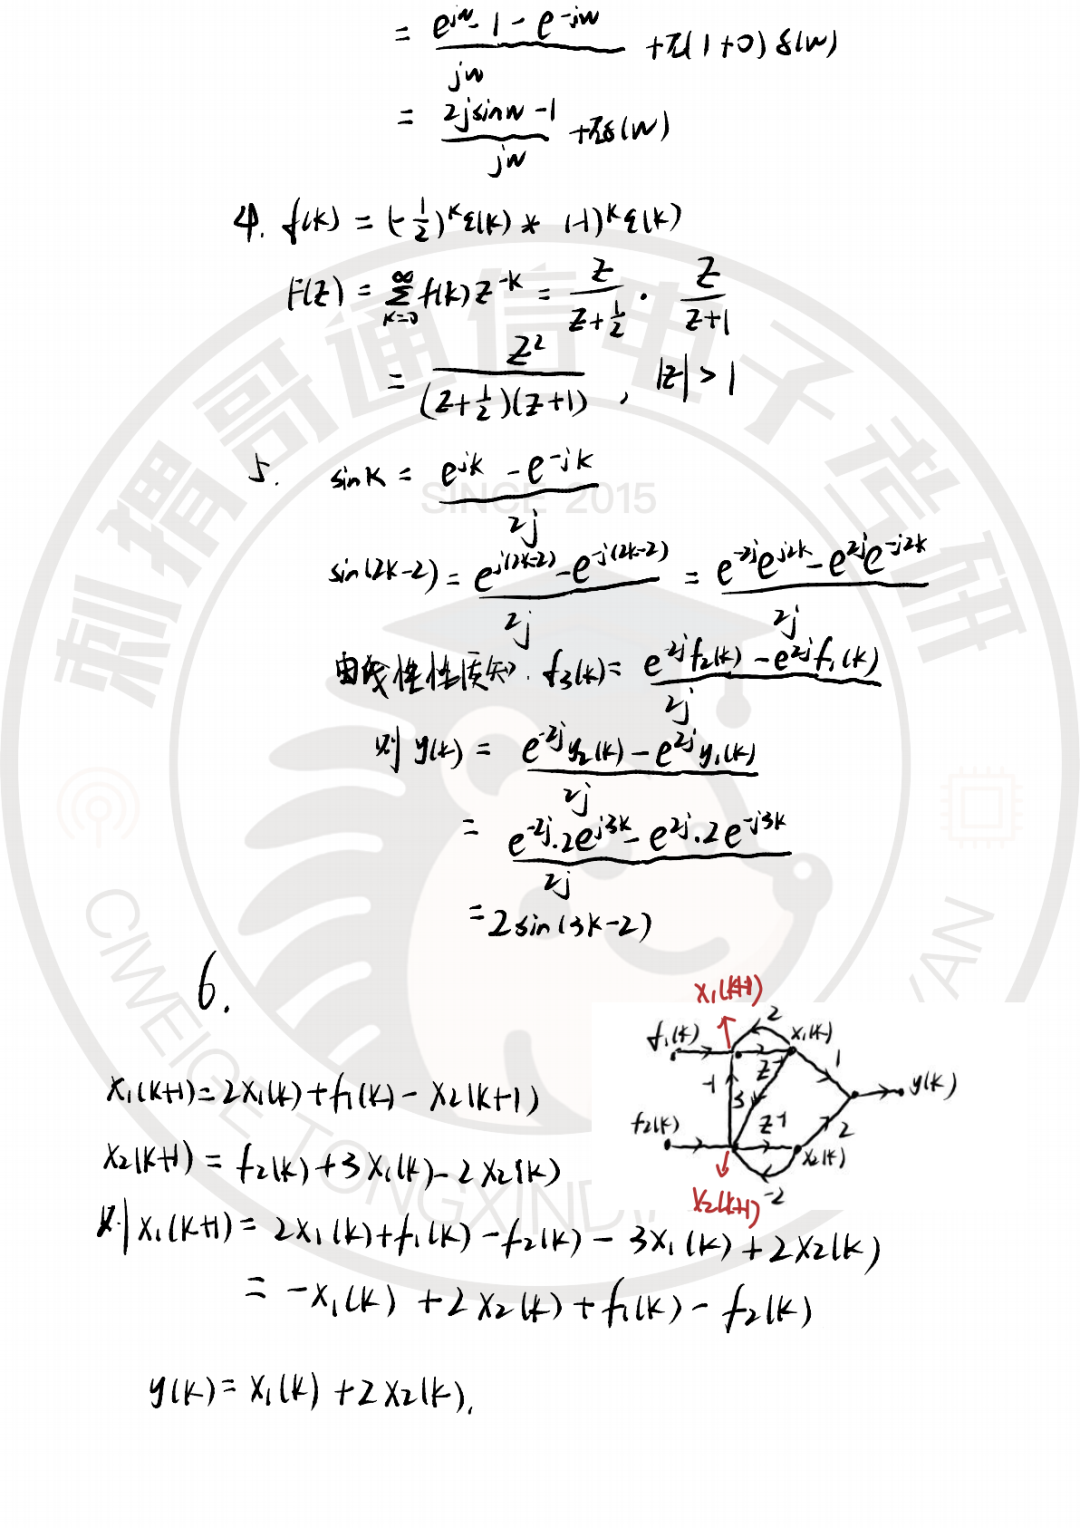 = (e^{jw} - 1 - e^{-jw}) / jw + π(1+0)δ(w)
= (2jsinw - 1) / jw + πδ(w)
4. f(k) = (-1/2)^k ε(k) * (-1)^k ε(k)
F(z) = Σ_{k=0}^{∞} f(k) z^{-k} = z / (z + 1/2) · z / (z+1)
= z² / ((z + 1/2)(z+1)) , |z| > 1
5. sin k = (e^{jk} - e^{-jk}) / 2j
sin(2k-2) = (e^{j(2k-2)} - e^{-j(2k-2)}) / 2j = (e^{-2j}e^{j2k} - e^{2j}e^{-j2k}) / 2j
由线性性质知. f₃(k) = (e^{-2j}f₂(k) - e^{2j}f₁(k)) / 2j
则 y(k) = (e^{-2j}y₂(k) - e^{2j}y₁(k)) / 2j
= (e^{-2j}·2e^{j3k} - e^{2j}·2e^{-j3k}) / 2j
= 2sin(3k-2)
6.
x₁(k+1)
f₁(k) 2 x₁(k)
z⁻¹ 1
-1 3 y(k)
f₂(k) z⁻¹ 2
x₂(k)
x₂(k+1) -2
x₁(k+1) = 2x₁(k) + f₁(k) - x₂(k+1)
x₂(k+1) = f₂(k) + 3x₁(k) - 2x₂(k)
则 x₁(k+1) = 2x₁(k) + f₁(k) - f₂(k) - 3x₁(k) + 2x₂(k)
= -x₁(k) + 2x₂(k) + f₁(k) - f₂(k)
y(k) = x₁(k) + 2x₂(k).
刺猬哥通信电子考研
SINCE 2015